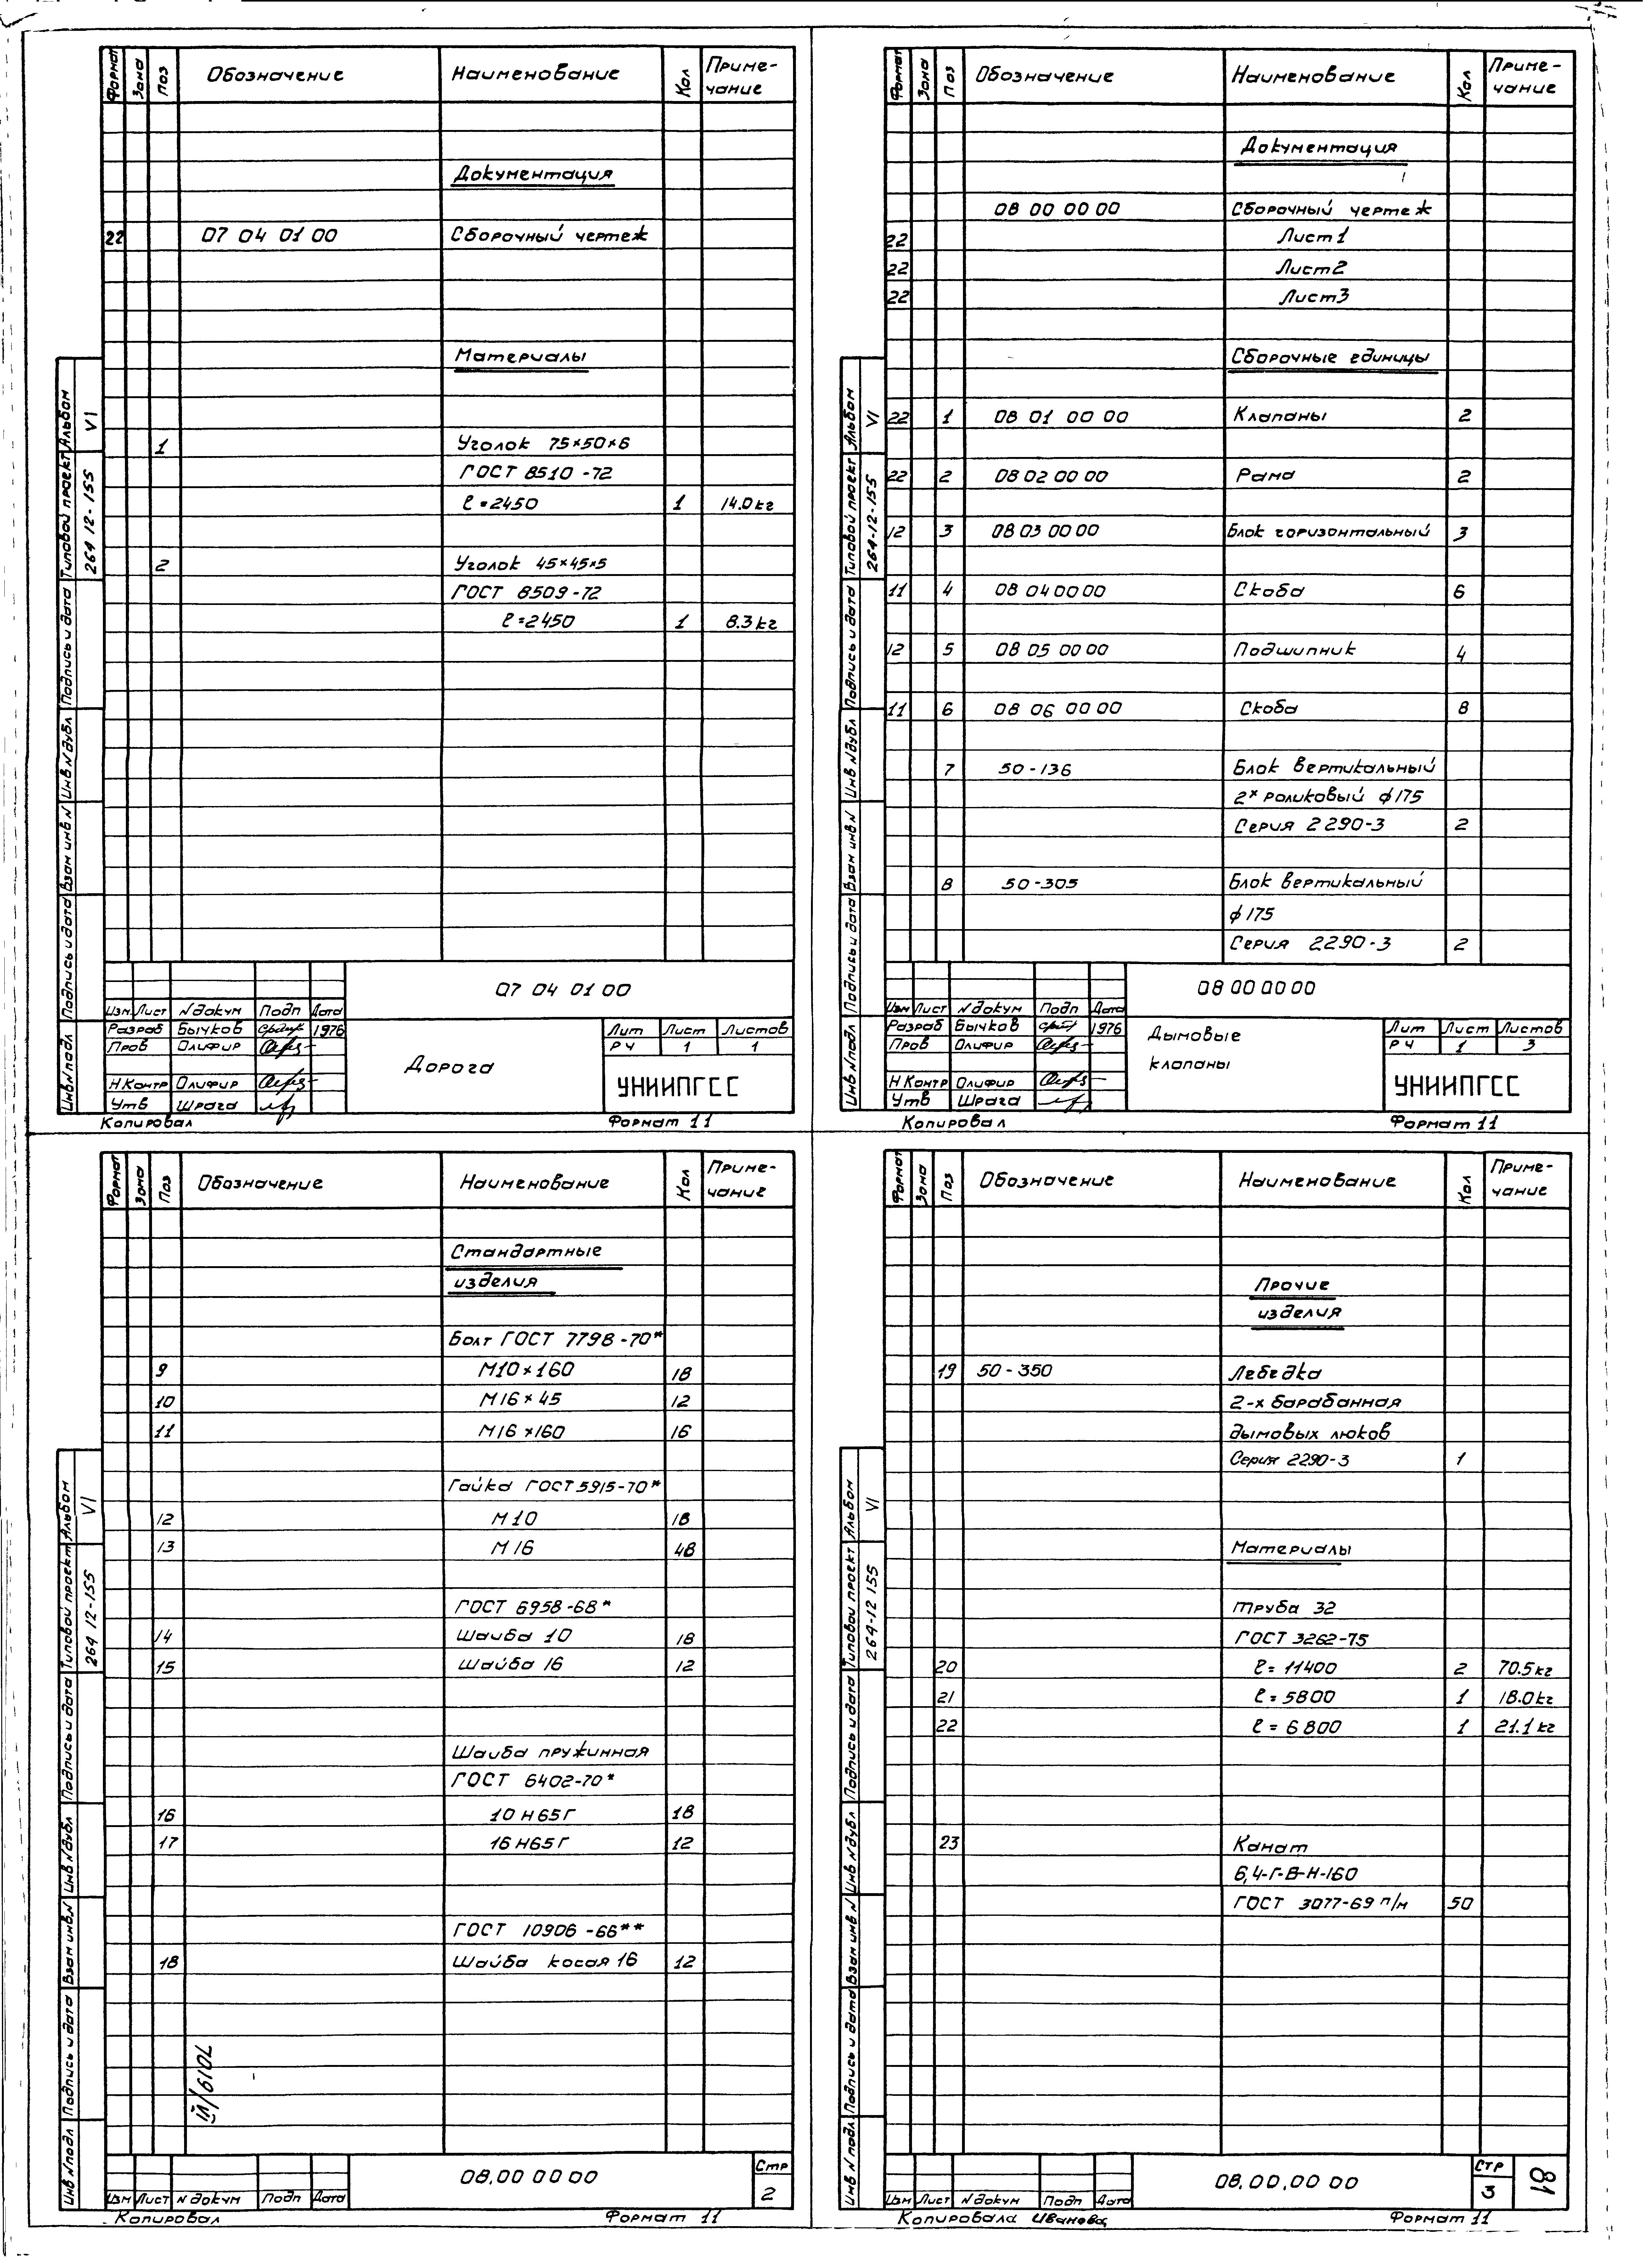 Формат Зона Поз Обозначение Наименование Кол Приме-
чание
Документация
22 07 04 01 00 Сборочный чертеж
Материалы
1 Уголок 75×50×6
ГОСТ 8510-72
ℓ=2450 1 14.0кг
2 Уголок 45×45×5
ГОСТ 8509-72
ℓ=2450 1 8.3кг
Альбом VI
Типовой проект 264 12-155
Подпись и дата
Инв N дубл
Взам инв N
Подпись и дата
Инв N подл
07 04 01 00
Изм Лист N докум Подп Дата
Разраб Бычков 1976
Пров Олифир
Н Контр Олифир
Утв Шрага
Дорога
Лит Лист Листов
РЧ 1 1
УНИИПГСС
Копировал Формат 11
Формат Зона Поз Обозначение Наименование Кол Приме-
чание
Документация
08 00 00 00 Сборочный чертеж
22 Лист1
22 Лист2
22 Лист3
Сборочные единицы
22 1 08 01 00 00 Клапаны 2
22 2 08 02 00 00 Рама 2
12 3 08 03 00 00 Блок горизонтальный 3
11 4 08 04 00 00 Скоба 6
12 5 08 05 00 00 Подшипник 4
11 6 08 06 00 00 Скоба 8
7 50-136 Блок вертикальный
2х роликовый ф175
Серия 2290-3 2
8 50-305 Блок вертикальный
ф175
Серия 2290-3 2
Альбом VI
Типовой проект 264-12-155
Подпись и дата
Инв N дубл
Взам инв N
Подпись и дата
Инв N подл
08 00 00 00
Изм Лист N докум Подп Дата
Разраб Бычков 1976
Пров Олифир
Н Контр Олифир
Утв Шрага
Дымовые
клапаны
Лит Лист Листов
РЧ 1 3
УНИИПГСС
Копировал Формат 11
Формат Зона Поз Обозначение Наименование Кол Приме-
чание
Стандартные
изделия
Болт ГОСТ 7798-70*
9 М10×160 18
10 М16×45 12
11 М16×160 16
Гайка ГОСТ 5915-70*
12 М10 18
13 М16 48
ГОСТ 6958-68*
14 Шайба 10 18
15 Шайба 16 12
Шайба пружинная
ГОСТ 6402-70*
16 10 Н65Г 18
17 16 Н65Г 12
ГОСТ 10906-66**
18 Шайба косая 16 12
Альбом VI
Типовой проект 264 12-155
Подпись и дата
Инв N дубл
Взам инв N
Подпись и дата
Инв N подл
08,00 00 00
Стр
2
Изм Лист N докум Подп Дата
Копировал Формат 11
Формат Зона Поз Обозначение Наименование Кол Приме-
чание
Прочие
изделия
19 50-350 Лебедка
2-х барабанная
дымовых люков
Серия 2290-3 1
Материалы
Труба 32
ГОСТ 3262-75
20 ℓ=11400 2 70.5кг
21 ℓ=5800 1 18.0кг
22 ℓ=6800 1 21.1кг
23 Канат
6,4-Г-В-Н-160
ГОСТ 3077-69 п/м 50
Альбом VI
Типовой проект 264-12 155
Подпись и дата
Инв N дубл
Взам инв N
Подпись и дата
Инв N подл
08,00,00 00
Стр
3
81
Изм Лист N докум Подп Дата
Копировала Иванова Формат 11